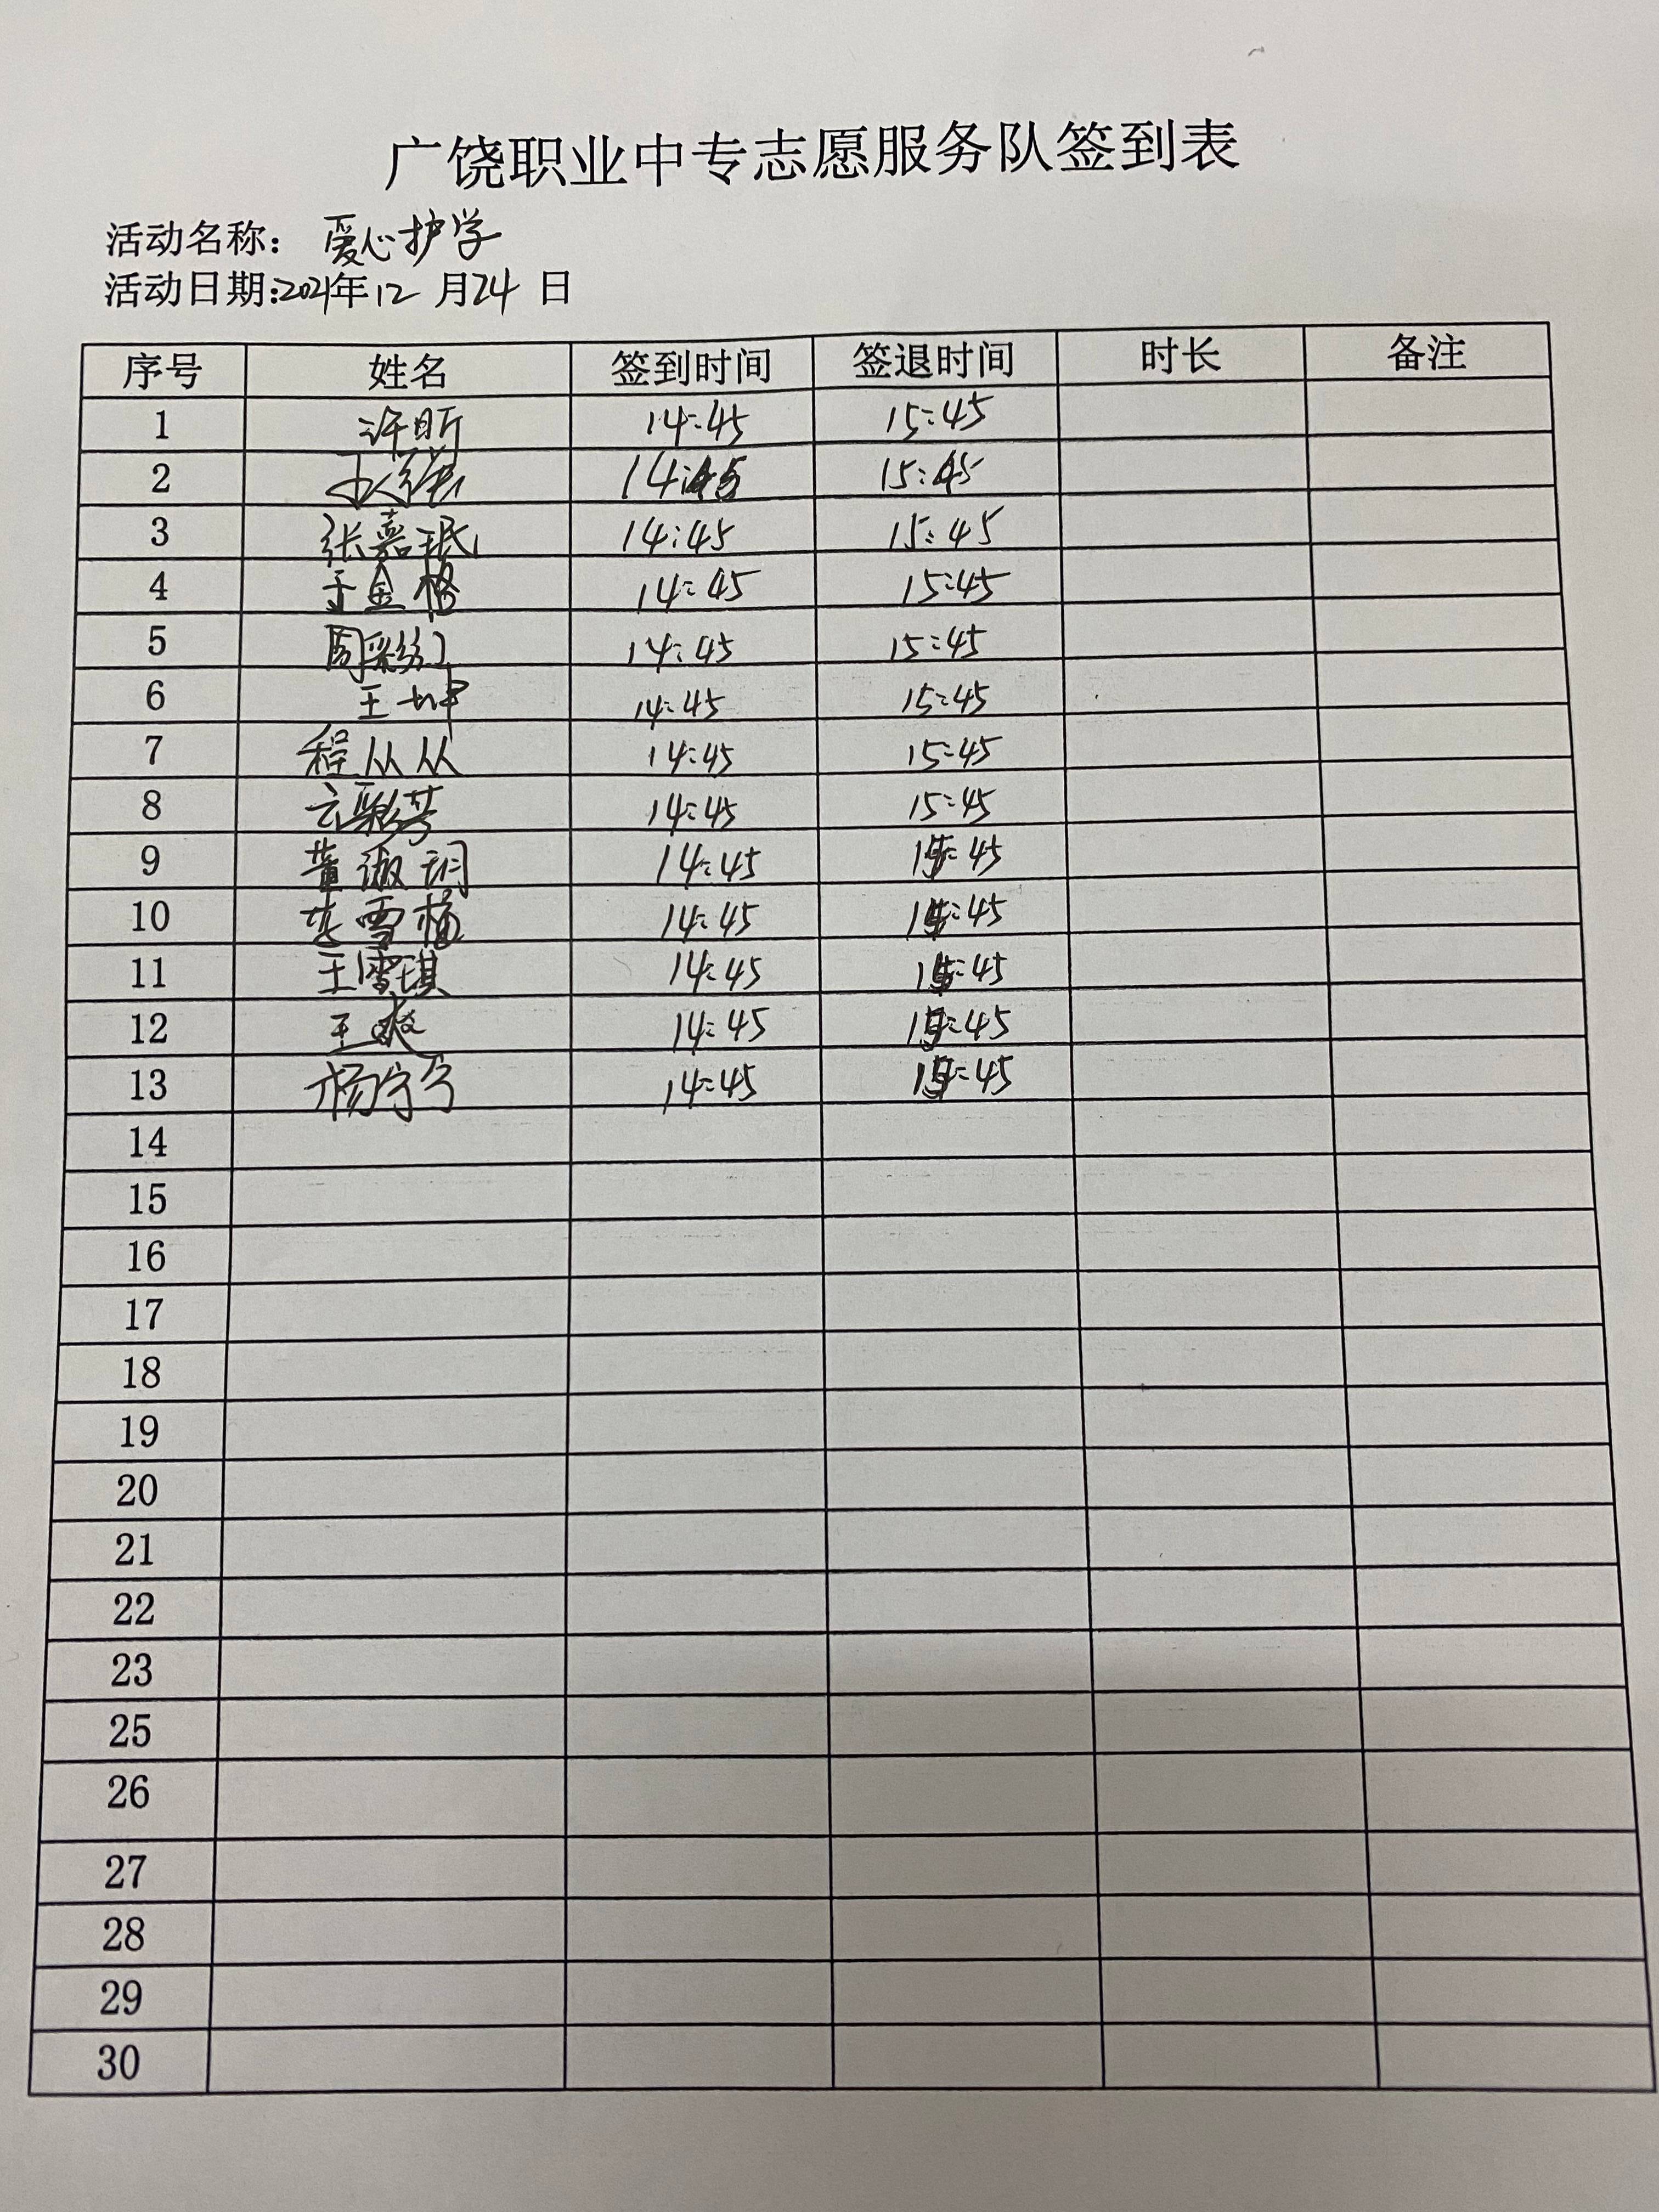 广饶职业中专志愿服务队签到表
活动名称： 爱心护学
活动日期:2021年12月24日
序号 姓名 签到时间 签退时间 时长 备注
1 许昕 14:45 15:45
2 14:45 15:45
3 张嘉珉 14:45 15:45
4 金格 14:45 15:45
5 周彩红 14:45 15:45
6 王坤 14:45 15:45
7 程从从 14:45 15:45
8 云彩芳 14:45 15:45
9 董淑玥 14:45 15:45
10 李雪梅 14:45 15:45
11 王雪琪 14:45 15:45
12 王爽 14:45 15:45
13 杨宁宁 14:45 15:45
14
15
16
17
18
19
20
21
22
23
25
26
27
28
29
30